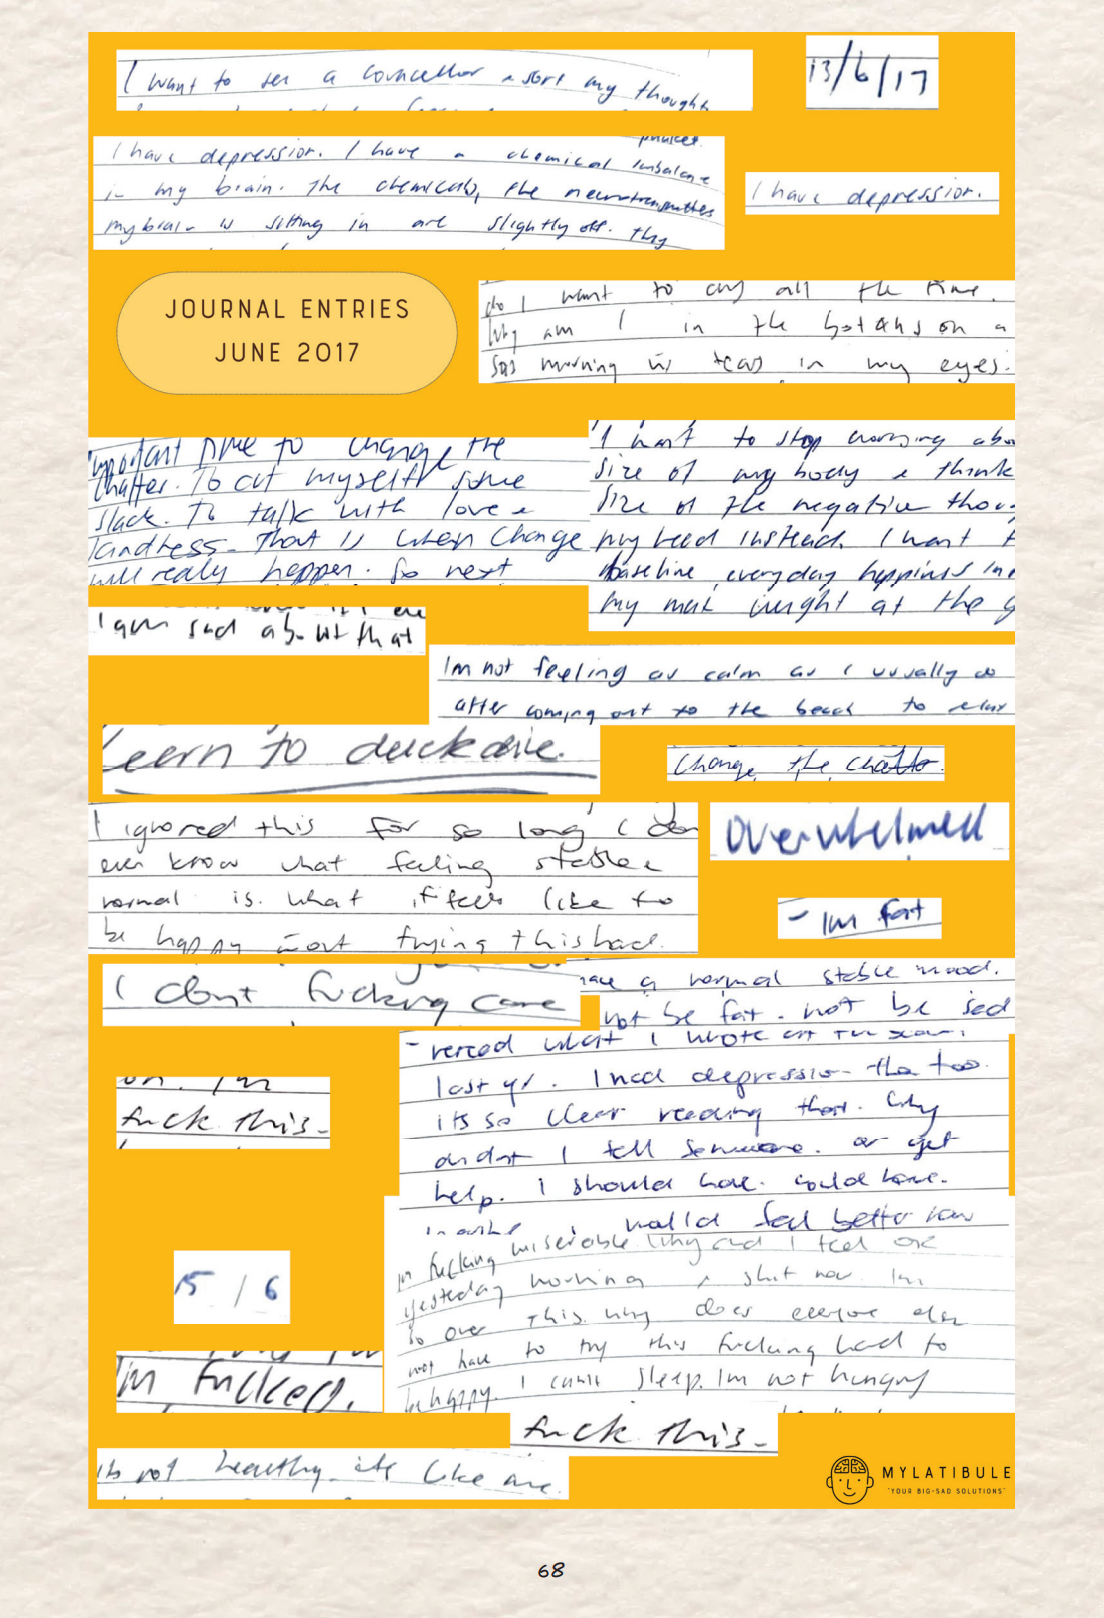 I want to see a councellor & sort my thoughts
13/6/17
I have depression. I have a chemical imbalance
in my brain. The chemicals, the neurotransmitters
my brain is sitting in are slightly off. They
I have depression.
JOURNAL ENTRIES
JUNE 2017
do I want to cry all the time.
Why am I in the botans on a
morning tears in my eyes.
important time to change the
chatter. To cut myself some
slack. To talk with love &
kindness. That is when change
will really happen. So next
I want to stop worrying abo
size of my body & think
size of the negative thou
my head instead. I want
baseline, everyday happiness
my weight at the g
I am sad about that
Im not feeling as calm as I usually do
after coming out to the beach to relax
Learn to duckdive.
Change the chatter
I ignored this for so long I don
even know what feeling stable &
normal is. What it feels like to
be happy out trying this hard.
Overwhelmed
- Im fat
I dont fucking care
have a normal stable mood.
not be fat. not be sad
- reread what I wrote at
last yr. I had depression then too.
its so clear reading that. Why
didnt I tell someone. or get
help. I should have. could have.
feel better now
on. I'm
fuck this.
Im fucking miserable. Why did I feel ok
yesterday morning & shit now. Im
so over this. why does everyone else
not have to try this fucking hard to
be happy. I cant sleep. Im not hungry
15/6
I'm fucked.
fuck this.
its not healthy.
MYLATIBULE
"YOUR BIG-SAD SOLUTIONS"
68